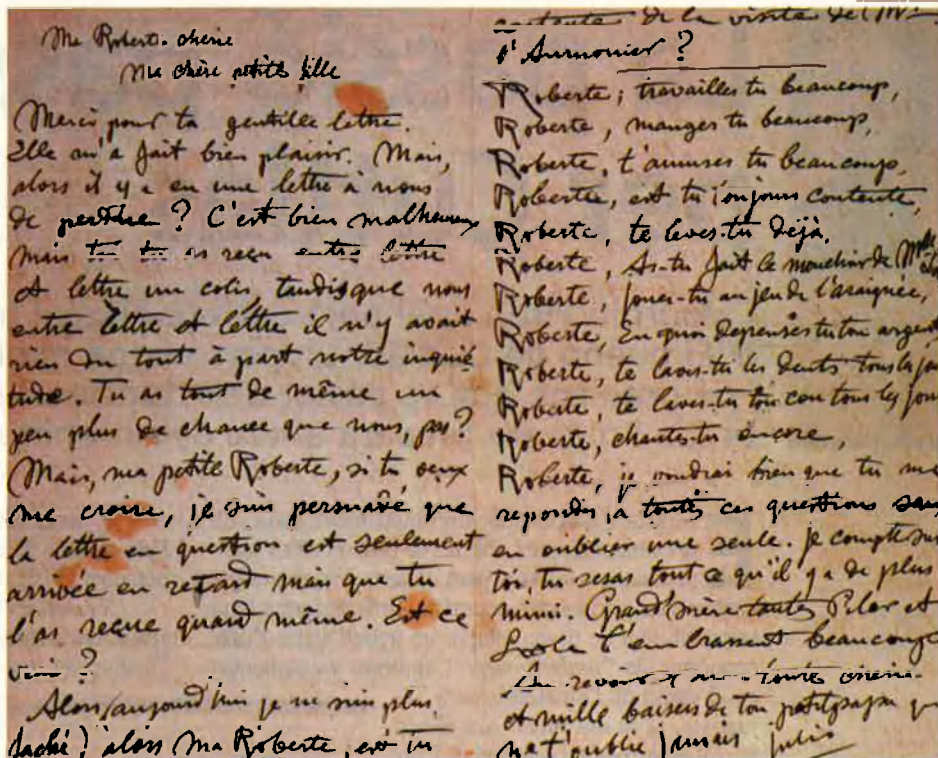 Ma Roberte chérie
Ma chère petite fille
Merci pour ta gentille lettre.
Elle m'a fait bien plaisir. Mais,
alors il y a eu une lettre à nous
de perdue ? C'est bien malheureux
mais tu as reçu entre lettre
et lettre un colis, tandis que nous
entre lettre et lettre il n'y avait
rien du tout à part notre inquié
tude. Tu as tout de même un
peu plus de chance que nous, pas ?
Mais, ma petite Roberte, si tu veux
me croire, je suis persuadé que
la lettre en question est seulement
arrivée en retard mais que tu
l'as reçue quand même. Est ce
vrai ?
Alors, aujourd'hui je ne suis plus
faché) alors Ma Roberte, est tu
contente de la visite de Mr
l'Aumonier ?
Roberte ; travailles tu beaucoup,
Roberte, manges tu beaucoup,
Roberte, t'amuses tu beaucoup,
Roberte, est tu toujours contente,
Roberte, te laves-tu déjà,
Roberte, As-tu fait le mouchoir de Melle
Roberte, joues-tu au jeu de l'araignée,
Roberte, En quoi depenses tu ton argent
Roberte, te laves-tu les dents tous les jou
Roberte, te laves-tu ton cou tous les jour
Roberte, chantes-tu encore,
Roberte, je voudrai bien que tu me
repondes à toutes ces questions sans
en oublier une seule. Je compte sur
toi, tu seras tout ce qu'il y a de plus
mimi. Grand'mère tantes Pilar et
Lola t'embrassent beaucoup
Au revoir toute cherie
et mille baisers de ton petit papa qu
ne t'oublie jamais julio